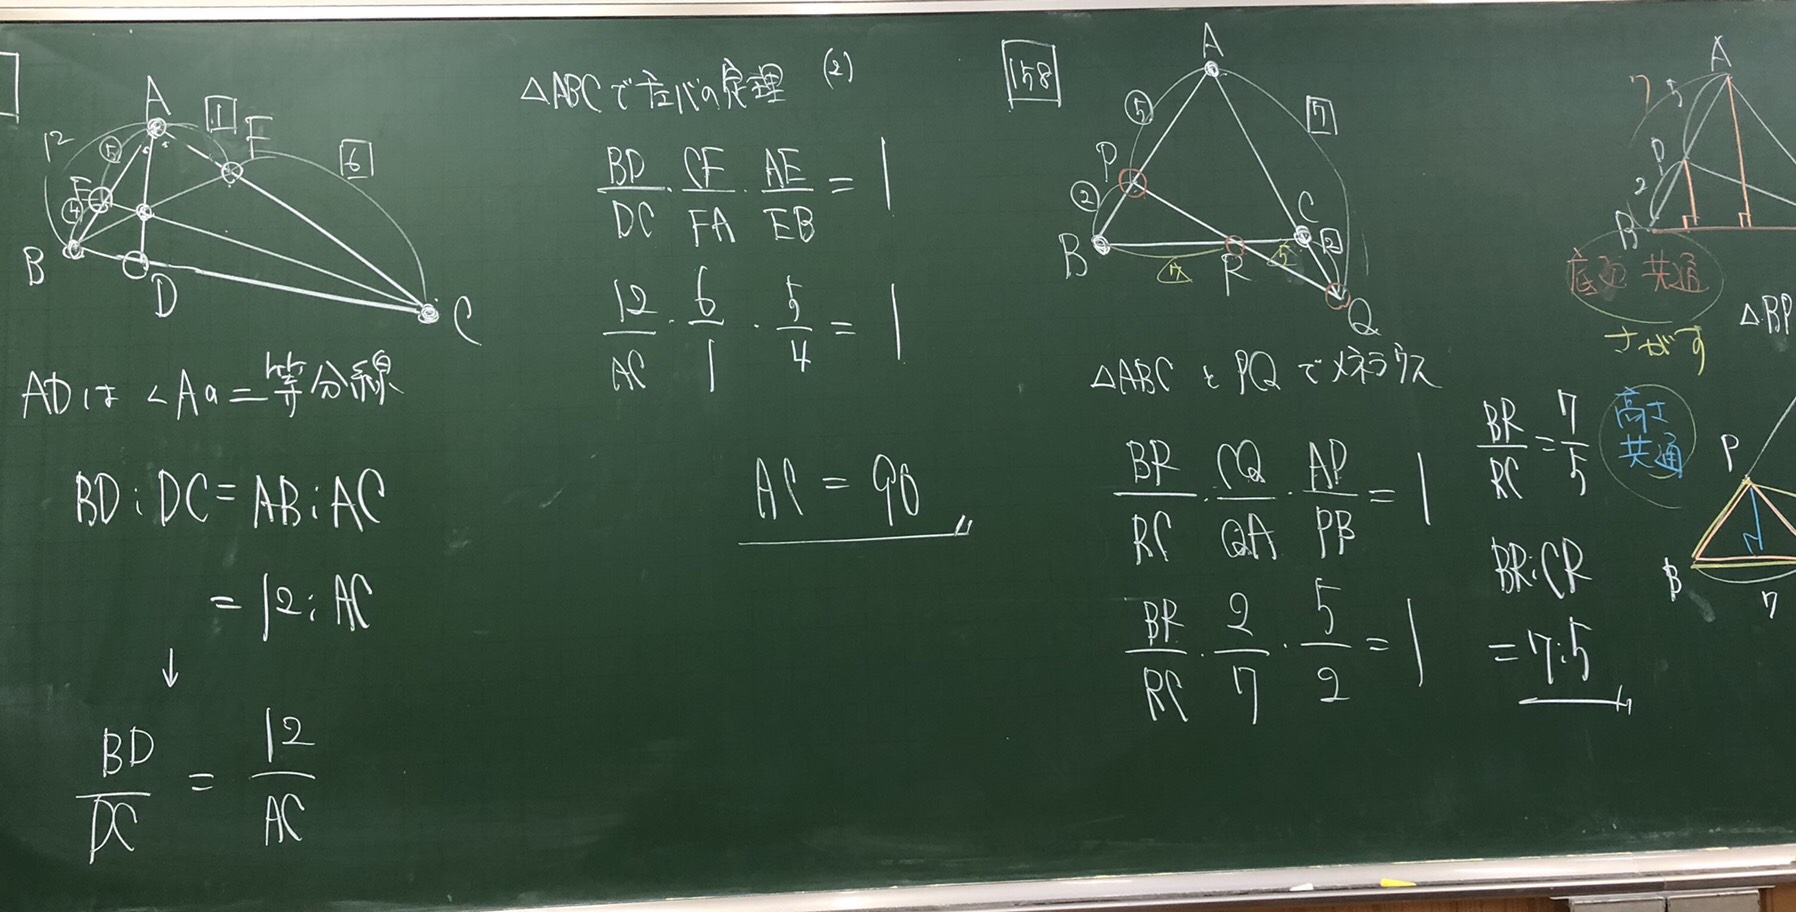 A
1
F
12
5
6
E
4
B
D
C
ADは∠Aの二等分線
BD:DC=AB:AC
=12:AC
↓
BD/DC = 12/AC
△ABCでチェバの定理
BD/DC・CF/FA・AE/EB=1
12/AC・6/1・5/4=1
AC = 90
(2)
158
A
5
7
P
2
C
2
B
7
R
5
Q
△ABCとPQでメネラウス
BR/RC・CQ/QA・AP/PB=1
BR/RC・2/7・5/2=1
BR/RC=7/5
BR:CR
=7:5
A
7
5
P
2
B
底辺共通
さがす
△BP
高さ
共通
P
B
7